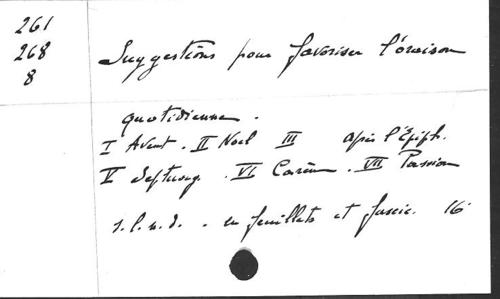 261
268
8
Suggestions pour favoriser l'oraison
quotidienne.
I Avent. II Noel III après l'Epiph.
V Septuag. VI Carême. VII Passion
s.l.n.d. - en feuillets et fascic. 16°